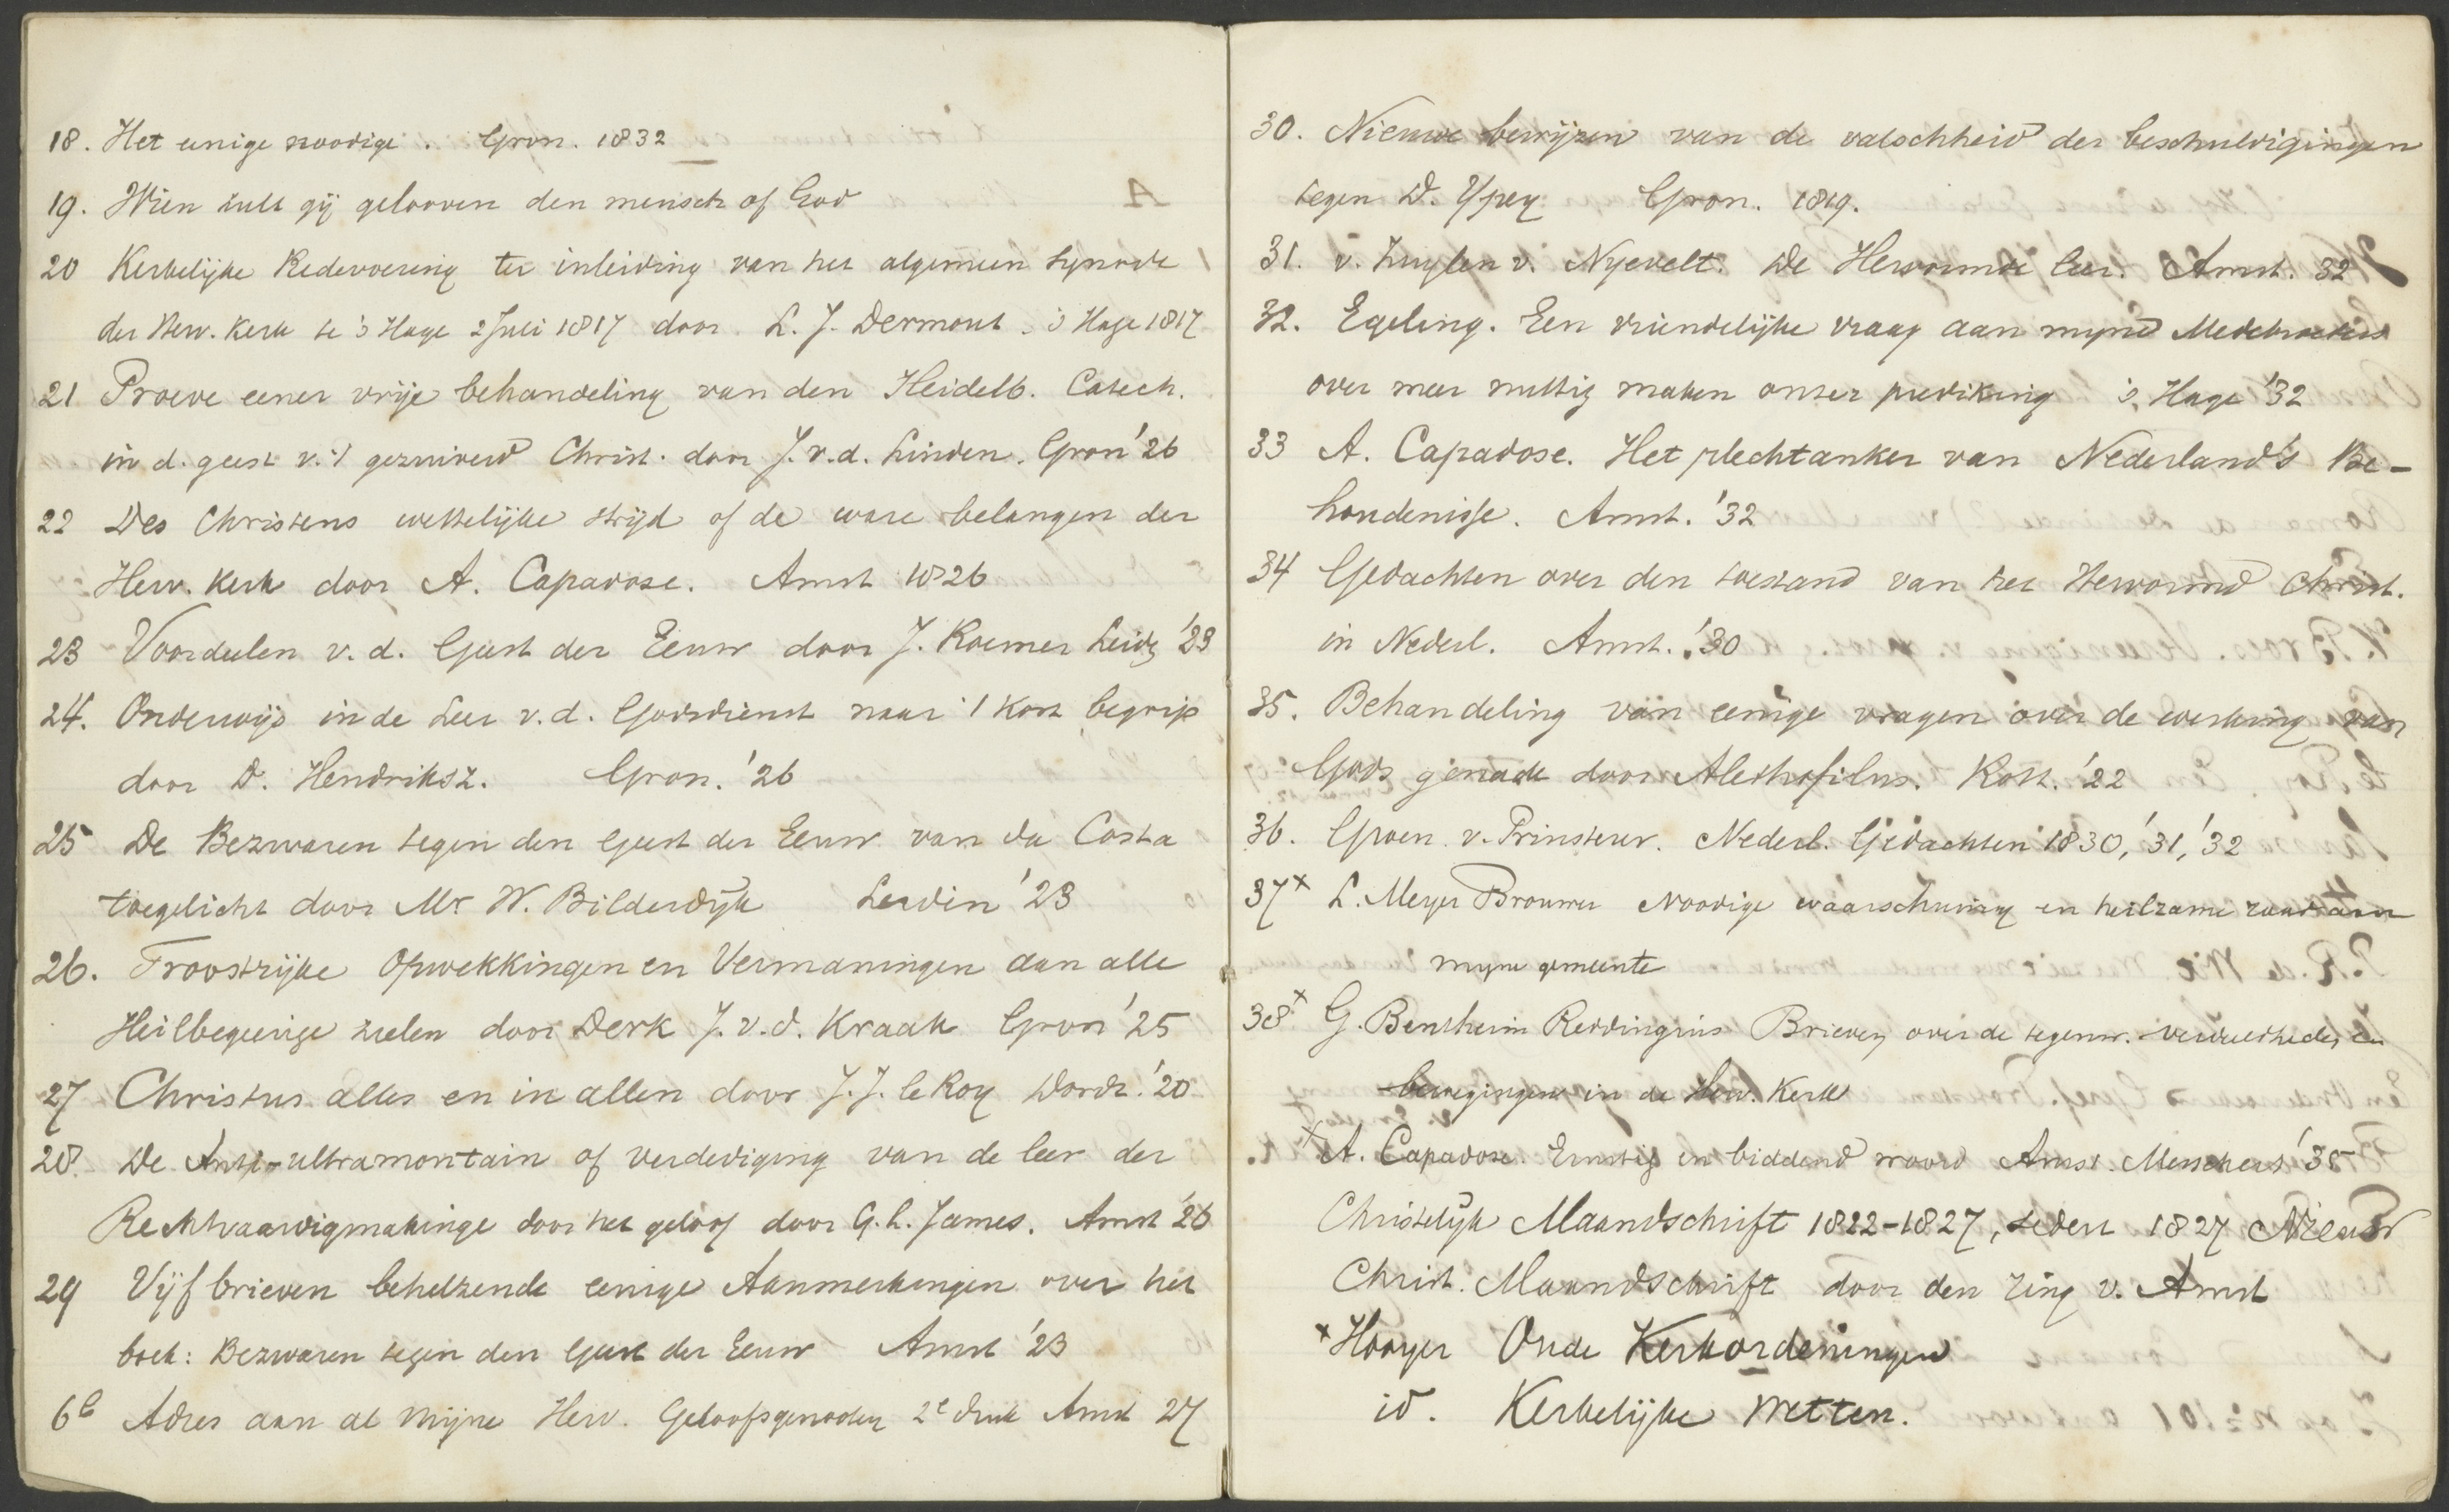 18. Het eenige noodige. Gron. 1832
19. Wien zult gij gelooven den mensch of God
20 Kerkelijke Redevoering ter inleiding van het algemeen Synode
der Herv. Kerk te 's Hage 2 Juli 1817 door I. J. Dermout. 's Hage 1817
21 Proeve eener vrije behandeling van den Heidelb. Catech.
in d. geest v. 't gezuiverd Christ. door J. v. d. Linden. Gron '26
22 Des Christens wettelijke strijd of de ware belangen der
Herv. Kerk door A. Capadose. Amst 1826
23 Voordeelen v. d. Geest der Eeuw door J. Roemer Leidg '23
24. Onderwijs in de Leer v. d. Godsdienst naar 't Kort begrip
door D. Hendriksz. Gron. '26
25 De Bezwaren tegen den Geest der Eeuw van da Costa
toegelicht door Mr W. Bilderdijk Leiden '23
26. Troostrijke Opwekkingen en Vermaningen aan alle
Heilbegeerige zielen door Derk J. v. d. Kraak Gron '25
27 Christus alles en in allen door J. J. le Roy Dordr. '20
28. De Anti-ultramontain of verdediging van de leer der
Rechtvaardigmakinge door het geloof door G. L. James. Amst '26
29 Vijf brieven behelzende eenige Aanmerkingen over het
boek: Bezwaren tegen den Geest der Eeuw Amst '23
6b Adres aan al mijne Herv. Geloofsgenooten 2e druk Amst 27
30. Nieuwe bewijzen van de valschheid der beschuldigingen
tegen D. Ypey Gron. 1819.
31. v. Zuylen v. Nyevelt. De Hervormde leer. Amst. 32
32. Egeling. Een vriendelijke vraag aan myne Medebroeders
over meer nuttig maken onzer prediking 's Hage '32
33 A. Capadose. Het plechtanker van Nederland's Be-
houdenisse. Amst. '32
34 Gedachten over den toestand van het Hervormd Christ.
in Nederl. Amst. '30
35. Behandeling van eenige vragen over de werking van
Gods genade door Alethofilus. Rott. '22
36. Groen v. Prinsterer. Nederl. Gedachten 1830, '31, '32
37x L. Meyer Brouwer Noodige waarschuwing en heilzame raad aan
myne gemeente
38x G. Benthem Reddingius Brieven over de tegenw. verdeeldheden en
bewegingen in de Herv. Kerk
x A. Capadose. Ernstig en biddend woord Amst. Messchert '35
Christelijk Maandschrift 1822-1827, sedert 1827 Nieuw
Christ. Maandschrift door den ring v. Amst
x Hooyer Oude Kerkordeningen
id. Kerkelijke Wetten.